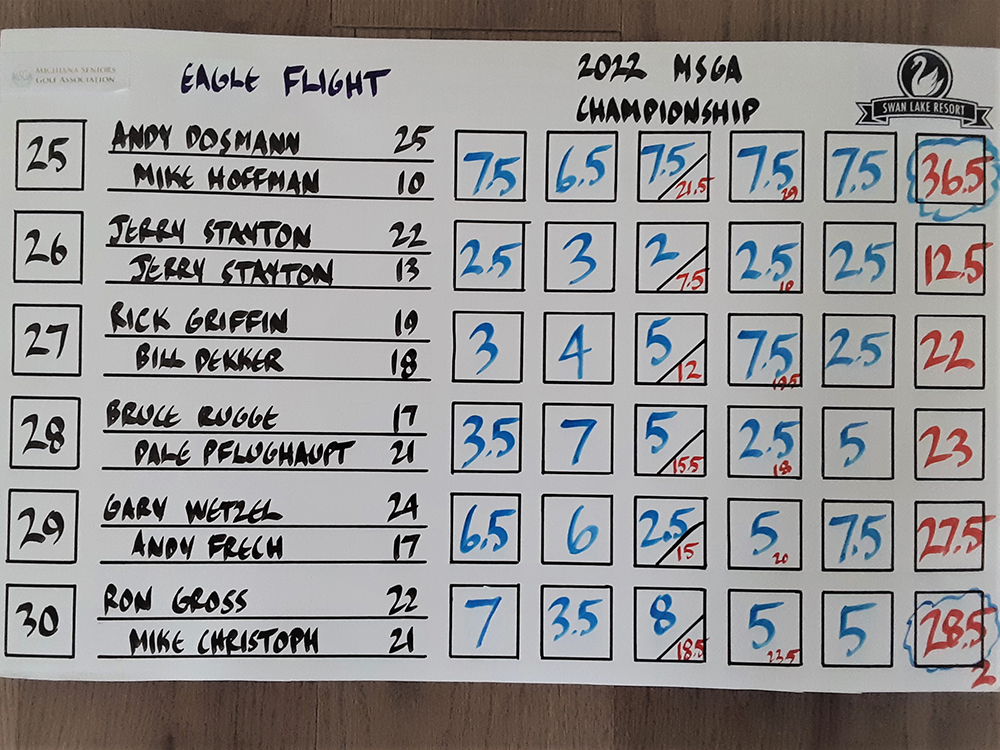 MICHIANA SENIORS
GOLF ASSOCIATION
EAGLE FLIGHT
2022 MSGA
CHAMPIONSHIP
SWAN LAKE RESORT
25
ANDY DOSMANN 25
MIKE HOFFMAN 10
7.5 6.5 7.5 21.5 7.5 29 7.5 36.5
26
JERRY STAYTON 22
JERRY STAYTON 13
2.5 3 2 7.5 2.5 10 2.5 12.5
27
RICK GRIFFIN 19
BILL DEKKER 18
3 4 5 12 7.5 19.5 2.5 22
28
BRUCE RUGGE 17
DALE PFLUGHAUPT 21
3.5 7 5 15.5 2.5 18 5 23
29
GARY WETZEL 24
ANDY FRECH 17
6.5 6 2.5 15 5 20 7.5 27.5
30
RON GROSS 22
MIKE CHRISTOPH 21
7 3.5 8 18.5 5 23.5 5 28.5
2